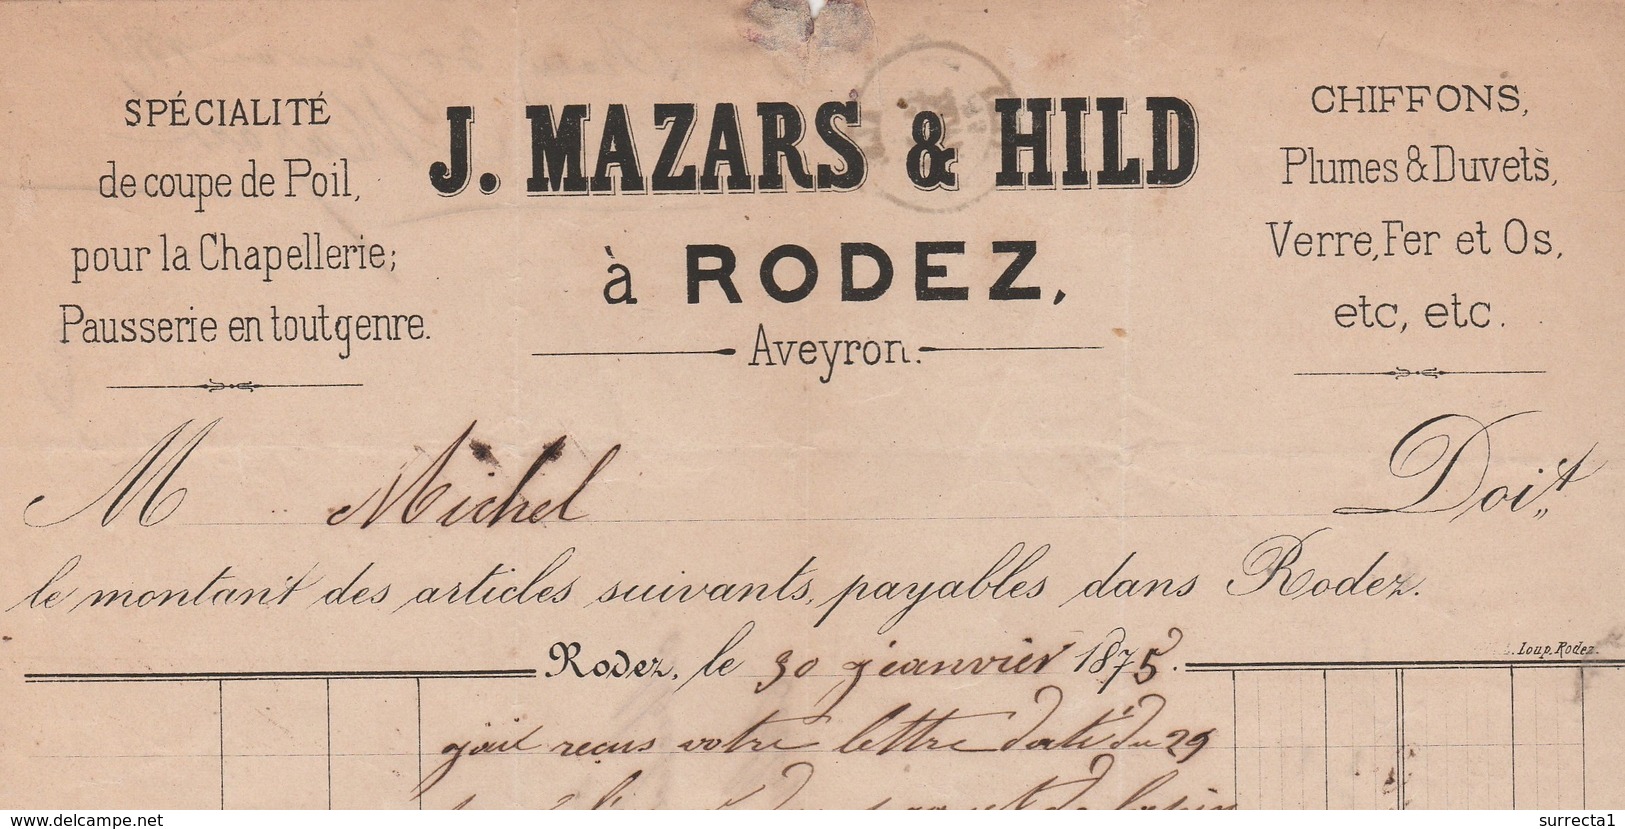 SPÉCIALITÉ
de coupe de Poil,
pour la Chapellerie;
Pausserie en tout genre.
J. MAZARS & HILD
à RODEZ,
Aveyron.
CHIFFONS,
Plumes & Duvets,
Verre, Fer et Os,
etc, etc.
M Michel Doit
le montant des articles suivants, payables dans Rodez.
Loup. Rodez.
Rodez, le 30 jeanvier 1875.
jait recus votre lettre daté du 29
de lapin
www.delcampe.net
surrecta1